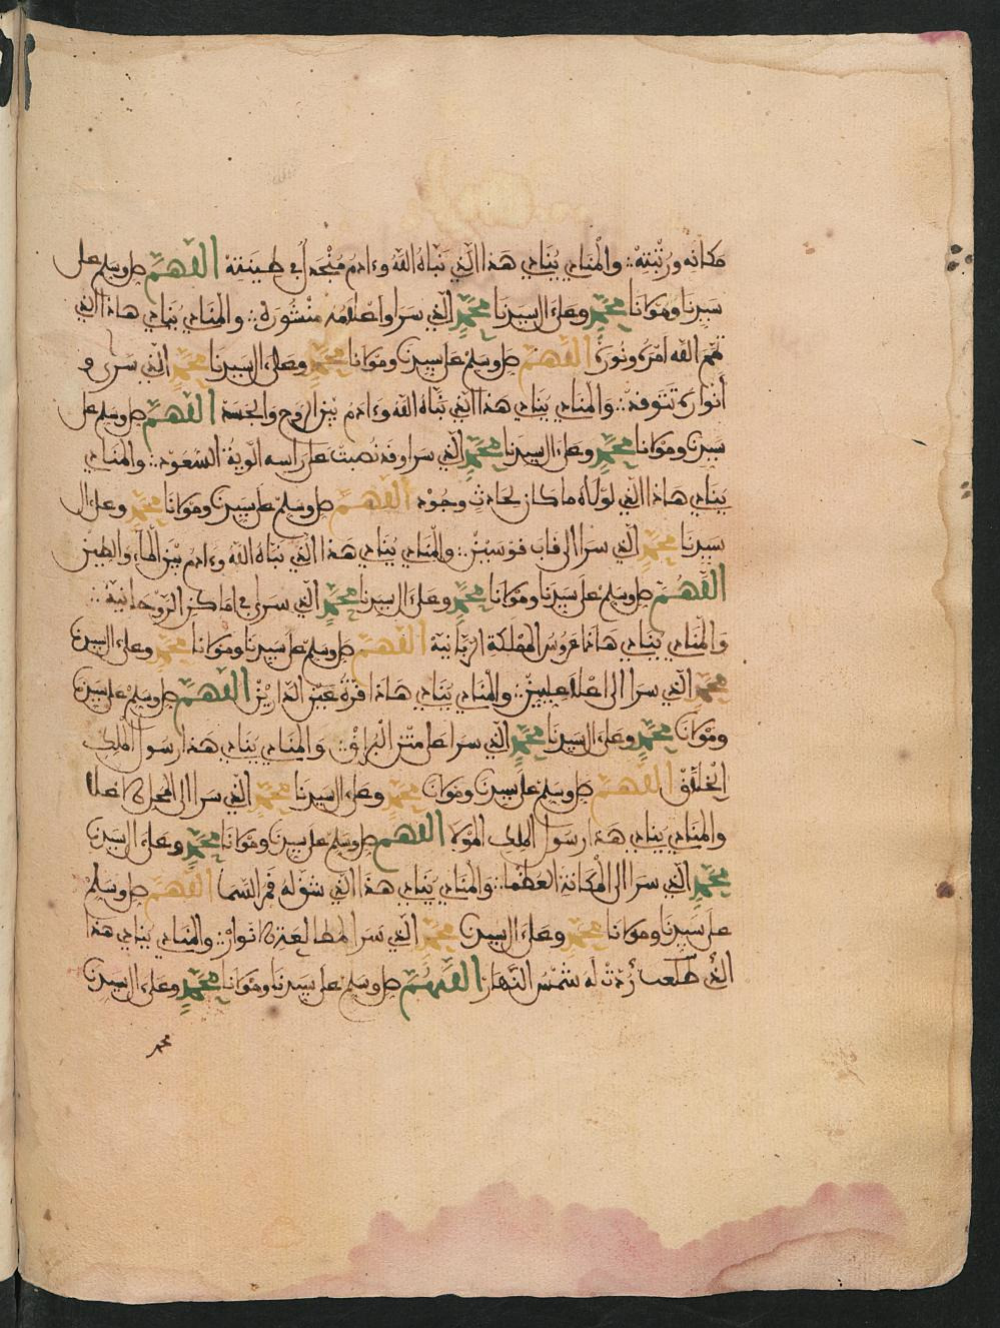 مكانه ورتبته والمنادي ينادي هذا الذي نباه الله وءادم منجدل في طينته اللهم صل وسلم على
سيدنا ومولانا محمد وعلى ءال سيدنا محمد الذي سرا واعلامه منشورة والمنادي ينادي هاذا الذي
تمم الله امره ونوره اللهم صل وسلم على سيدنا ومولانا محمد وعلى ءال سيدنا محمد الذي سرى و
أنواره تتوقد والمنادي ينادي هذا الذي نباه الله وءادم بين الروح والجسد اللهم صل وسلم على
سيدنا ومولانا محمد وعلى ءال سيدنا محمد الذي سرا وقد نصبت على راسه ألوية السعود والمنادي
ينادي هاذا الذي لولاه ما كان لحادث وجود اللهم صل وسلم على سيدنا ومولانا محمد وعلى ءال
سيدنا محمد الذي سرا الى قاب قوسين والمنادي ينادي هذا الذي نباه الله وءادم بين الماء والطين
اللهم صل وسلم على سيدنا ومولانا محمد وعلى ءال سيدنا محمد الذي سرى في اماكن الروحانية
والمنادي ينادي هاذا عروس المملكة الربانية اللهم صل وسلم على سيدنا ومولانا محمد وعلى ءال سيدنا
محمد الذي سرا الى اعلا عليين والمنادي ينادي هاذا قرة عين الدارين اللهم صل وسلم على سيدنا
ومولانا محمد وعلى ءال سيدنا محمد الذي سرا على متن البراق والمنادي ينادي هذا رسول الملك
الخلاق اللهم صل وسلم على سيدنا ومولانا محمد وعلى ءال سيدنا محمد الذي سرا الى المحل الاعلا
والمنادي ينادي هذا رسول الملك المولا اللهم صل وسلم على سيدنا ومولانا محمد وعلى ءال سيدنا
محمد الذي سرا الى المكانة العظما والمنادي ينادي هذا الذي شق له قمر السما اللهم صل وسلم
على سيدنا ومولانا محمد وعلى ءال سيدنا محمد الذي سرا لمطالعة الانوار والمنادي ينادي هذا
الذي طلعت ردت له شمس النهار اللهم صل وسلم على سيدنا ومولانا محمد وعلى ءال سيدنا
محمد